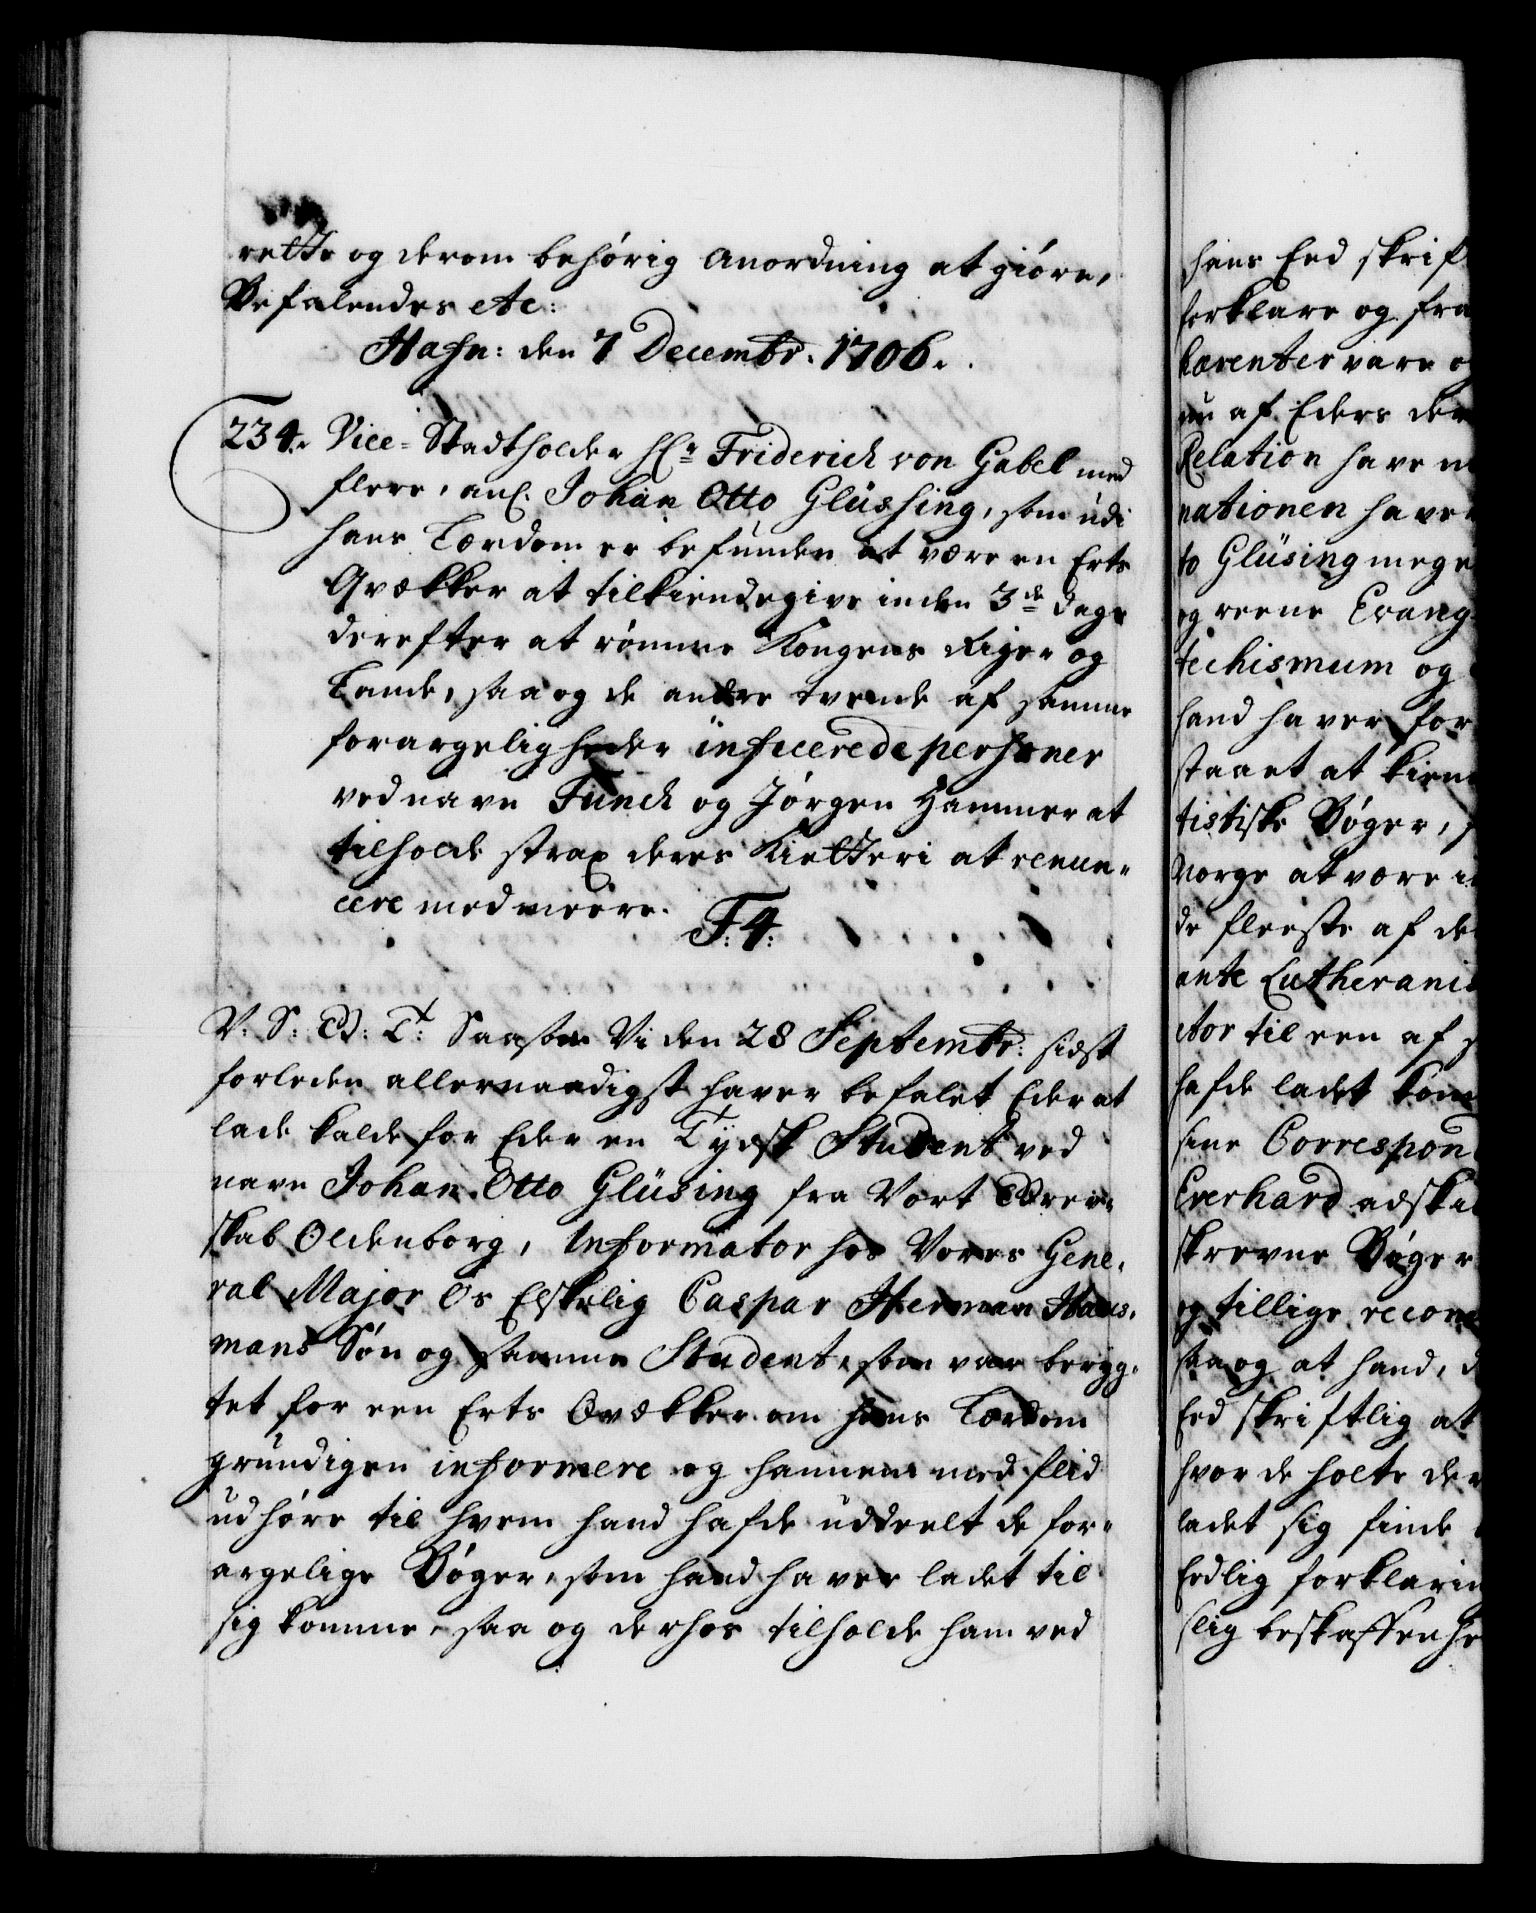 rette og derom behörig anordning at giöre,
Befalendes etc:
Hafn: den 7 Decembr. 1706.
234. Vice-Stadtholder Hr. Friderich von Gabel med
flere, anl. Johan Otto Glüssing, som udi
hans Lærdom er befunden at være en Erts
Qvækker at tilkiendegive inden 3de dage
derefter at römme Kongens Riger og
Lande, saa og de andre tvende af samme
forargeligheder inficerede personer
ved navn Funch og Jörgen Hammer at
tilholde strax deres Kietteri at renun-
cere med meere.
F. 4.
V: S: G: T: Saasom Vi den 28 Septembr: sidst
forleden allernaadigst haver befalet Eder at
lade kalde for Eder en Tydsk Student ved
navn Johan Otto Glüsing fra Vort Grev-
skab Oldenborg, Informator hos Vores Gene-
ral Major Os Elskelig Caspar Herman Haus-
mans Sön og samme Student, som var beryg-
tet for een Erts Qvækker om hans Lærdom
grundigen informere og hannem med flid
udhöre til hvem hand hafde uddeelt de for-
argelige Böger, som hand haver ladet til
sig komme, saa og derhos tilholde ham ved
hans Eed skrif
forklare og fra
hærenter vare
nu af Eders der
Relation have
nationen haver
to Glüsing mege
og reene Evang
techismum og
hand haver for
staaet at kien
tistiske Böger,
Norge at være
de fleeste af de
ante Lutheranis
ctor til een af
hafde ladet kom
sine Correspon
Everhard adski
skrevne Böger
og tillige recom
saa og at hand,
Eed skriftlig at
hvor de holte der
ladet sig finde
Eedlig forklarin
slig beskaffenhe